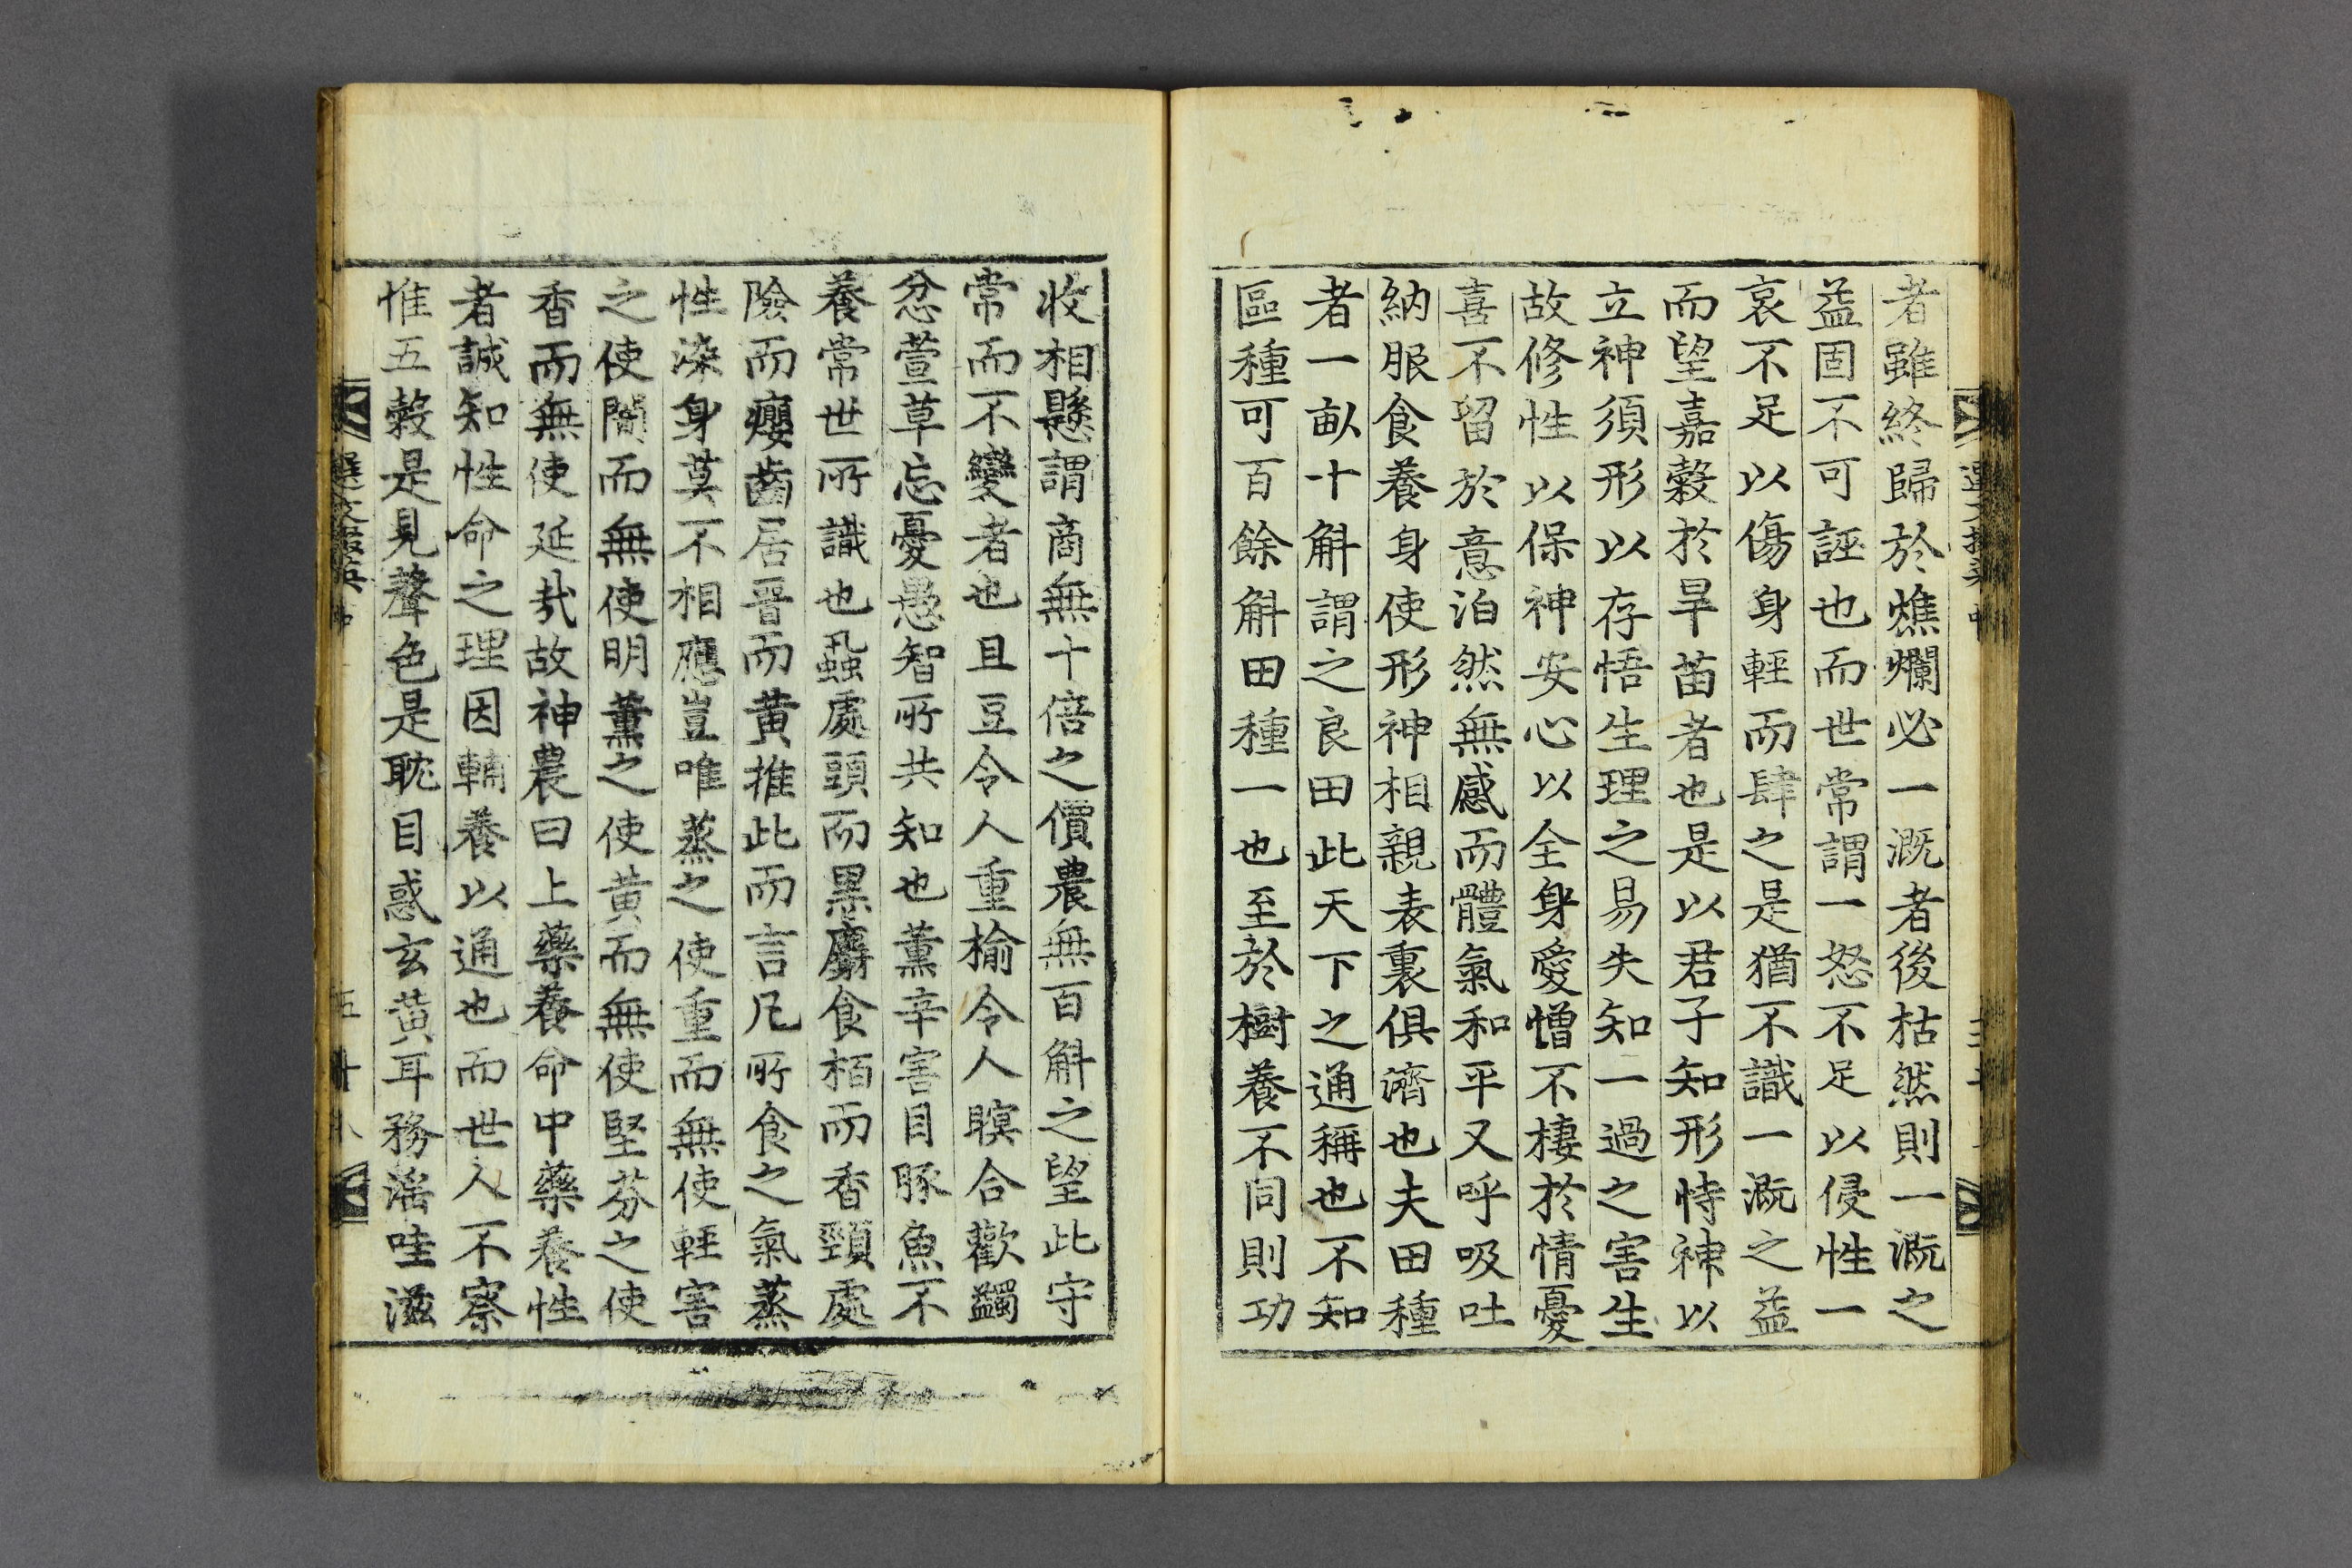 者雖終歸於燋爛必一溉者後枯然則一溉之
益固不可誣也而世常謂一怒不足以侵性一
哀不足以傷身輕而肆之是猶不識一溉之益
而望嘉穀於旱苗者也是以君子知形恃神以
立神須形以存悟生理之易失知一過之害生
故修性以保神安心以全身愛憎不棲於情憂
喜不留於意泊然無感而體氣和平又呼吸吐
納服食養身使形神相親表裏俱濟也夫田種
者一畝十斛謂之良田此天下之通稱也不知
區種可百餘斛田種一也至於樹養不同則功
收相懸謂商無十倍之價農無百斛之望此守
常而不變者也且豆令人重榆令人瞑合歡蠲
忿萱草忘憂愚智所共知也薰辛害目豚魚不
養常世所識也蝨處頭而黑麝食栢而香頸處
險而癭齒居晉而黃推此而言凡所食之氣蒸
性染身莫不相應豈唯蒸之使重而無使輕害
之使闇而無使明薰之使黃而無使堅芬之使
香而無使延㢤故神農曰上藥養命中藥養性
者誠知性命之理因輔養以通也而世人不察
惟五穀是見聲色是耽目惑玄黃耳務滛哇滋